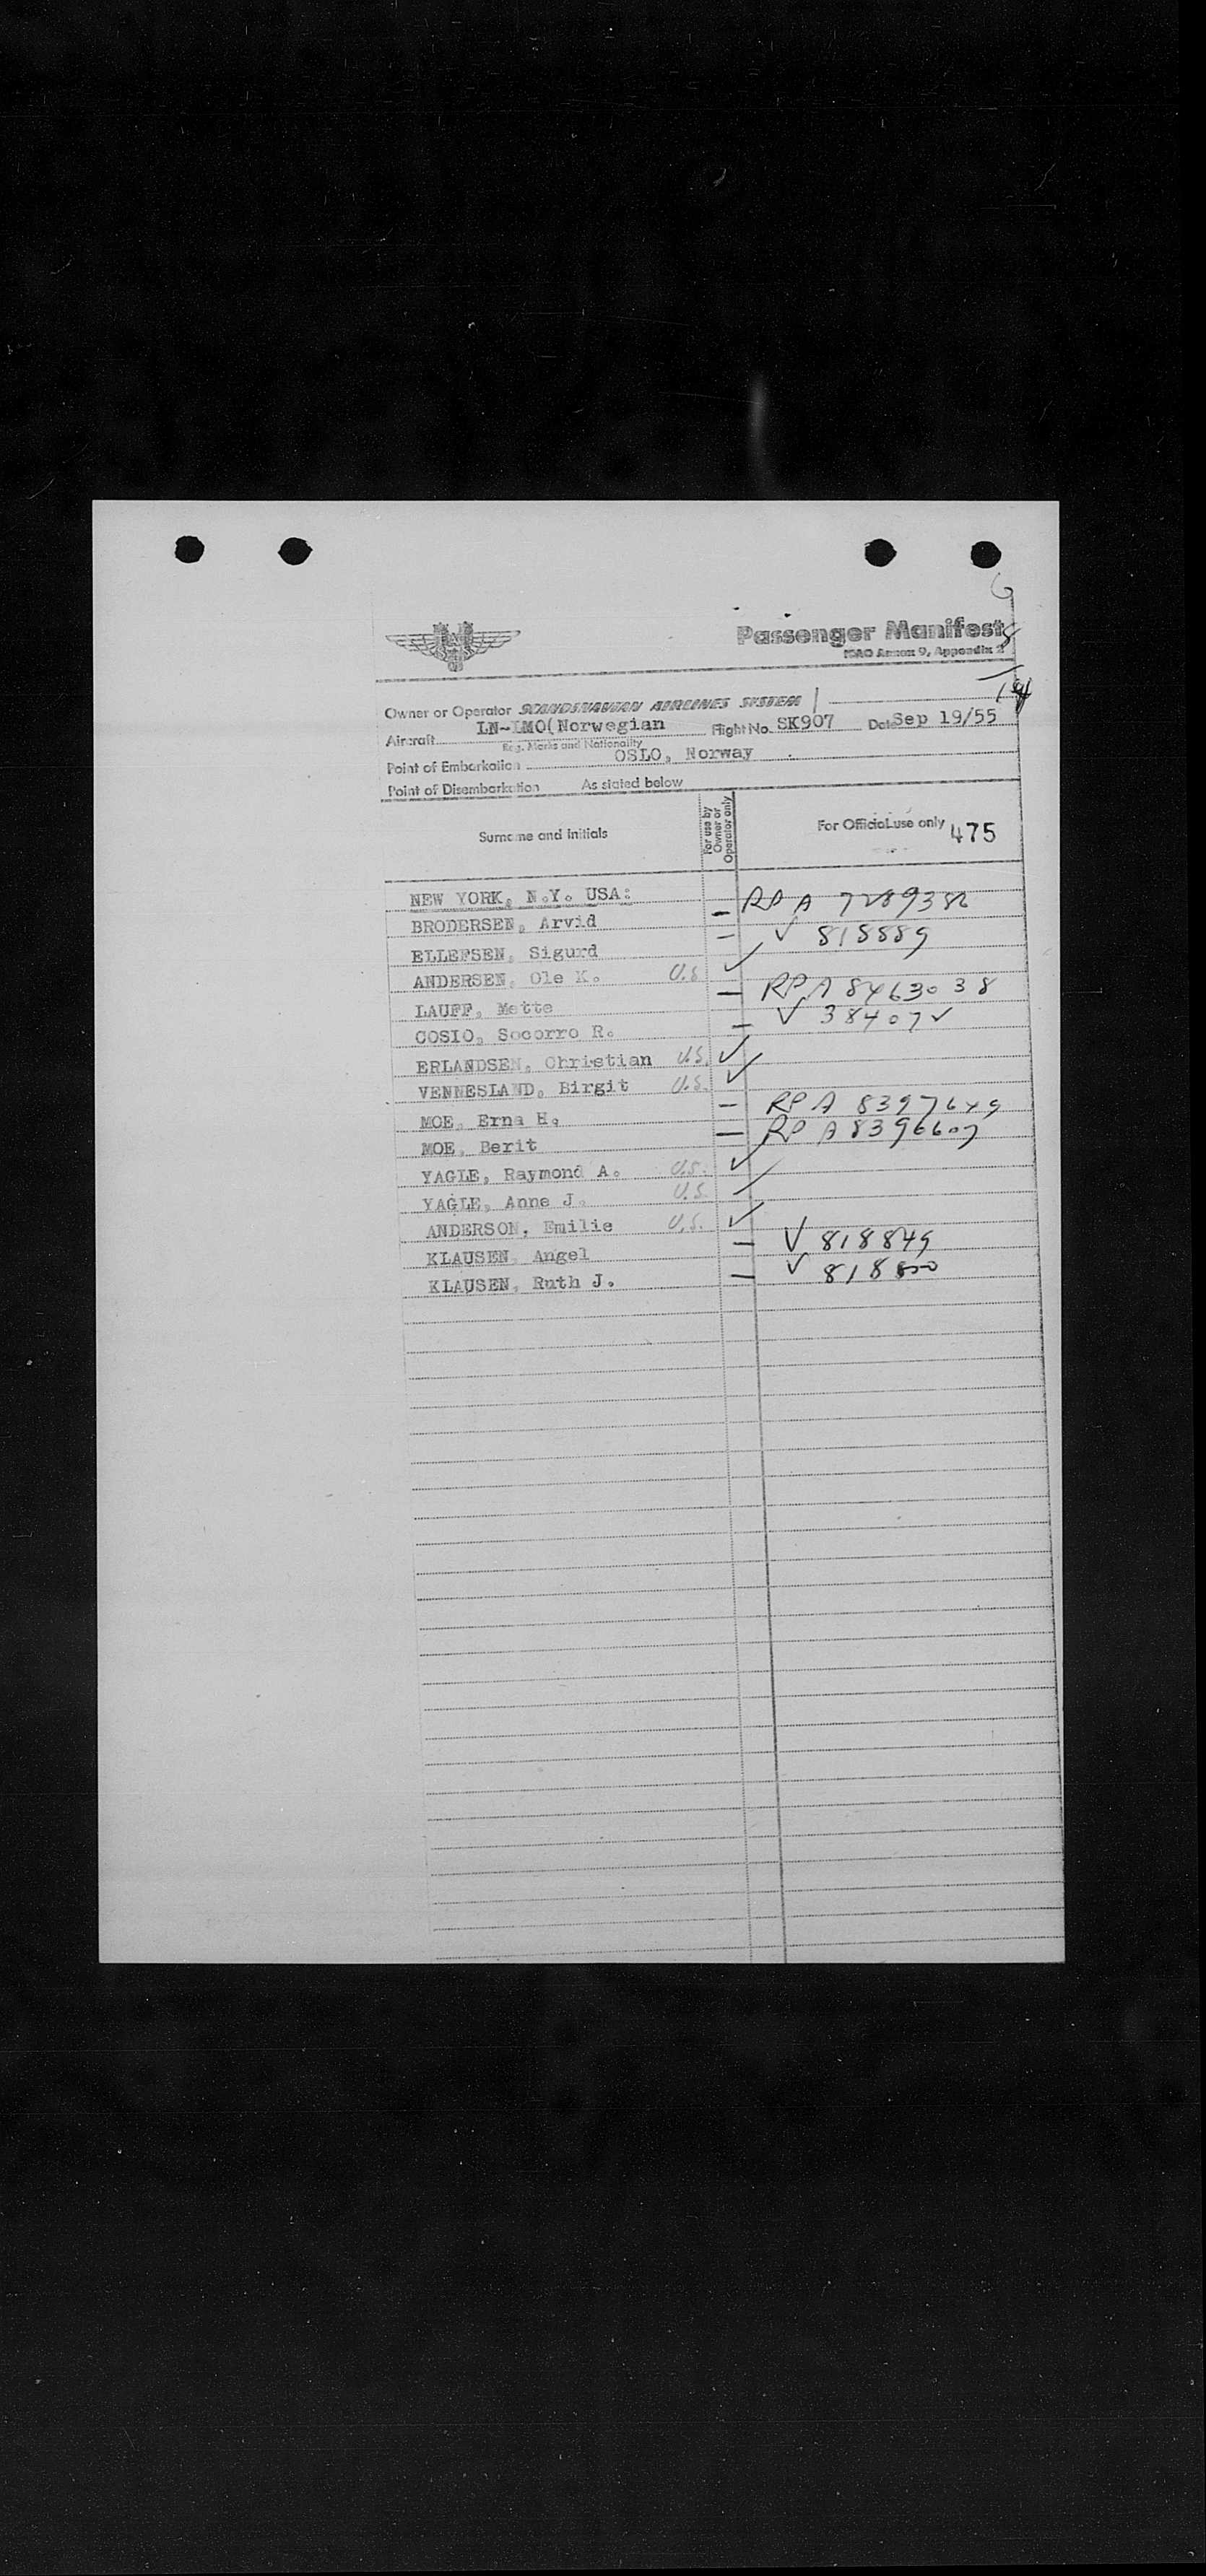 Passenger Manifest
ICAO Annex 9, Appendix 2
Owner or Operator SCANDINAVIAN AIRLINES SYSTEM
Aircraft LN-LMO(Norwegian Flight No. SK907 Date Sep 19/55
Reg. Marks and Nationality
Point of Embarkation OSLO, Norway
Point of Disembarkation As stated below
Surname and initials For use by Owner or Operator only For Official use only 475
NEW YORK, N.Y. USA:
BRODERSEN, Arvid — RP A 7289386
ELLEFSEN, Sigurd — V 818889
ANDERSEN, Ole K. U.S. ✓
LAUFF, Mette — RP A 8463038
COSIO, Socorro R. — V 384072
ERLANDSEN, Christian U.S. ✓
VENNESLAND, Birgit U.S. ✓
MOE, Erna H. — RP A 8397649
MOE, Berit — RP A 8396607
YAGLE, Raymond A. U.S. ✓
YAGLE, Anne J. U.S. ✓
ANDERSON, Emilie U.S. ✓
KLAUSEN, Angel — V 818849
KLAUSEN, Ruth J. — V 818850